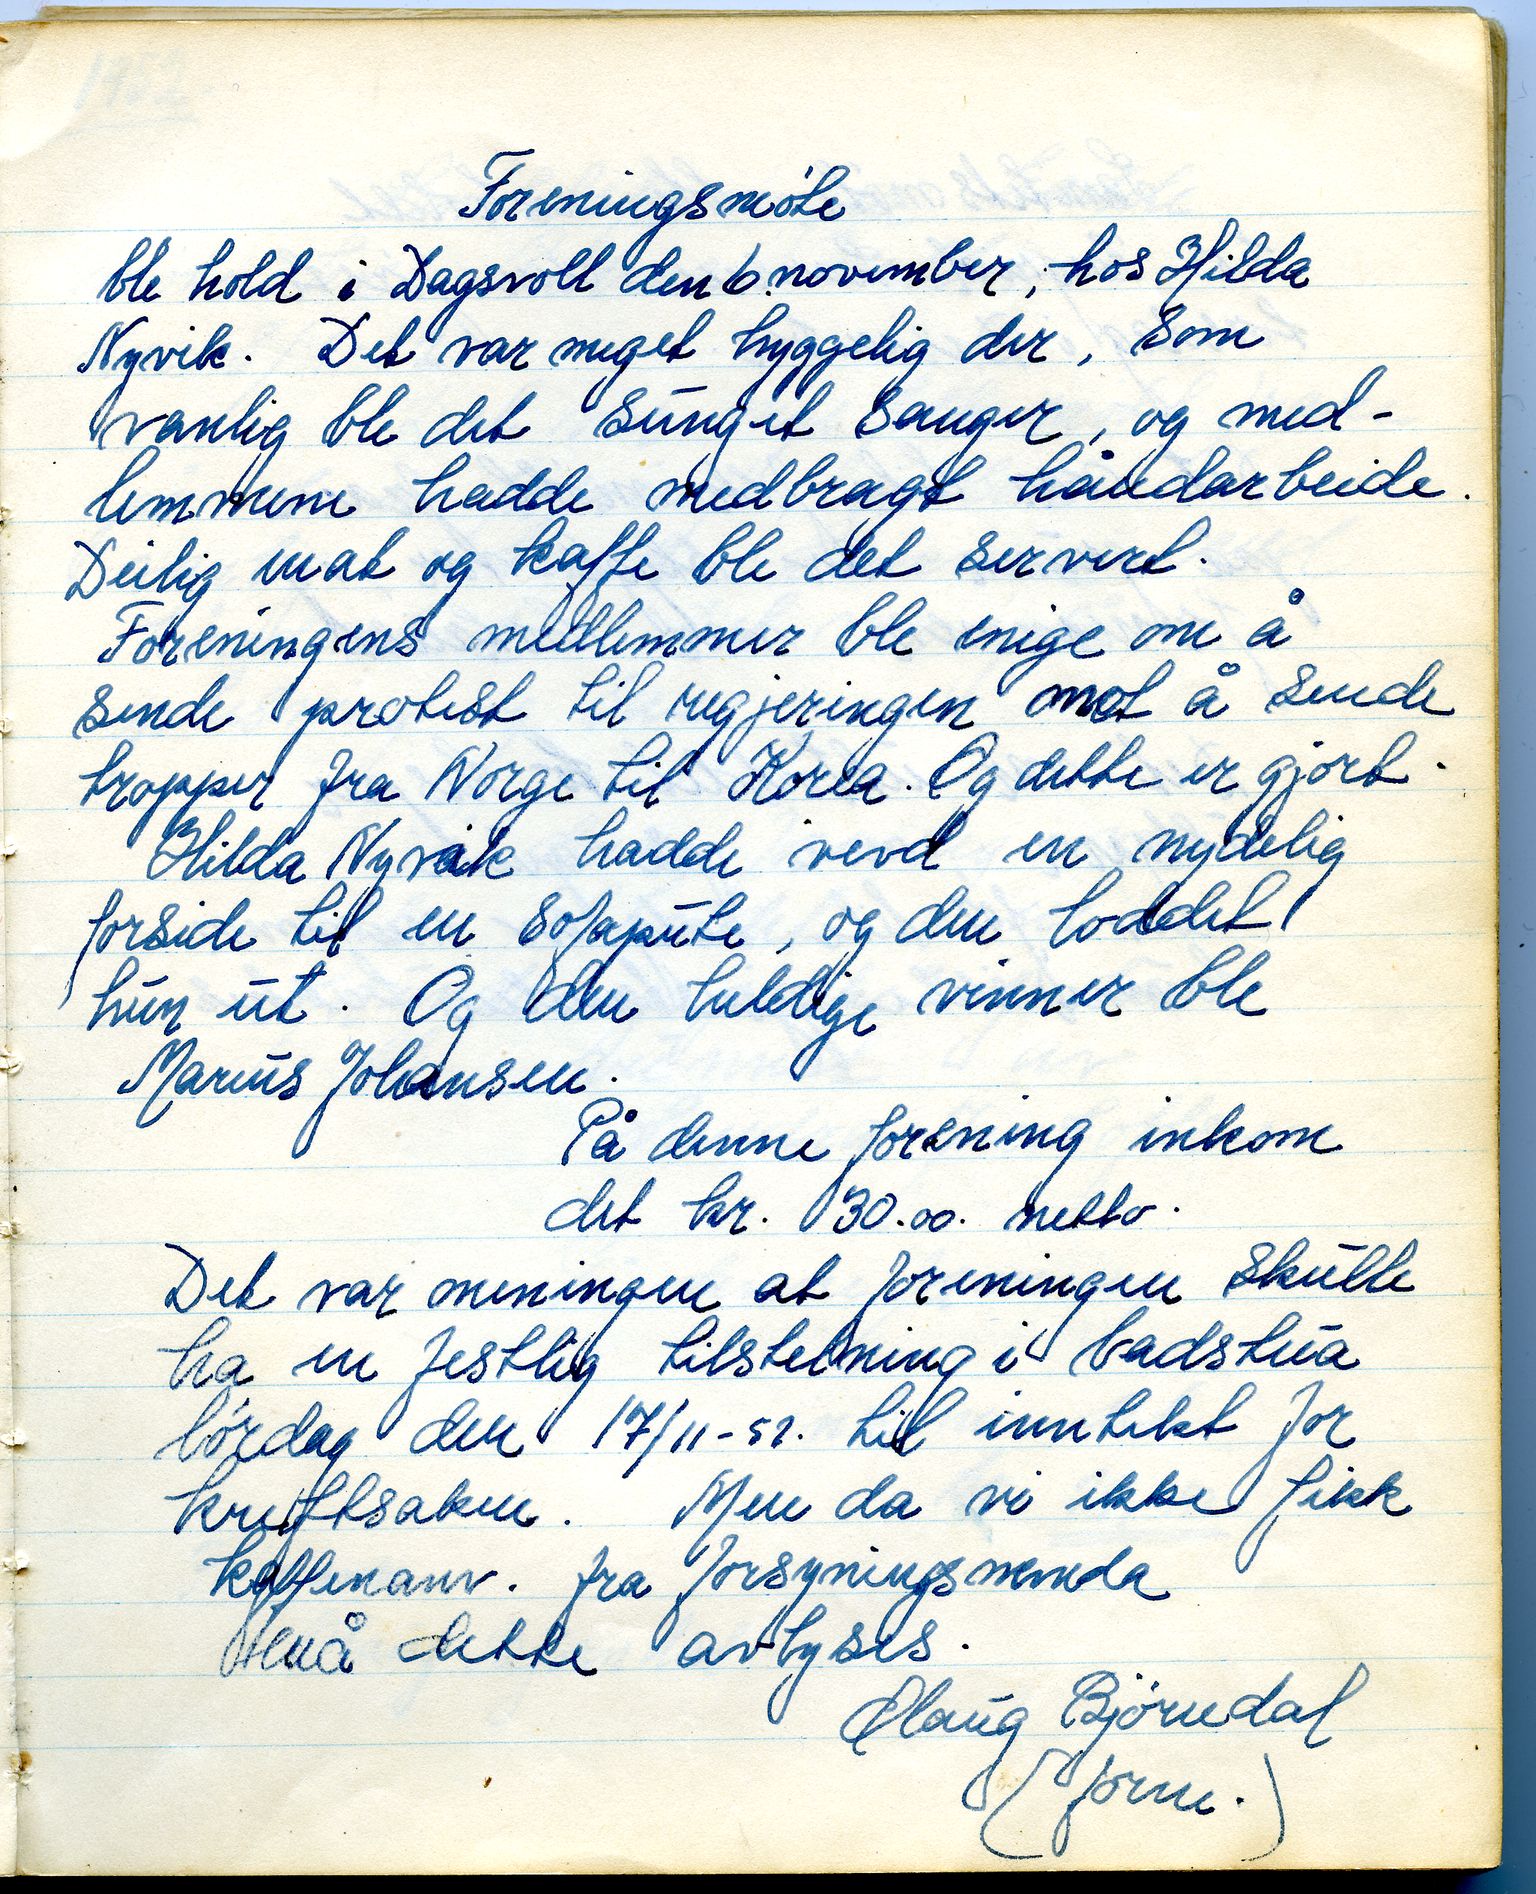 Foreningsmöte
ble hold i Dagsvoll den 6. november, hos Hilda
Nyvik. Det var meget hyggelig der, som
vanlig ble det sunget sanger, og med-
lemmene hadde medbragt håndarbeide.
Deilig mat og kaffe ble det servert.
Foreningens medlemmer ble enige om å
sende protest til regjeringen mot å sende
tropper fra Norge til Korea. Og dette er gjort.
Hilda Nyvik hadde vevd en nydelig
forside til en sofapute, og den loddet
hun ut. Og den heldige vinner ble
Marius Johansen.
På denne forening inkom
det kr. 30.00. netto.
Det var meningen at foreningen skulle
ha en festlig tilstelning i badstua
lördag den 17/11-51. til inntekt for
kreftsaken. Men da vi ikke fikk
kaffeanv. fra forsyningsnemda
må dette avlyses.
Olaug Björndal
(form.)